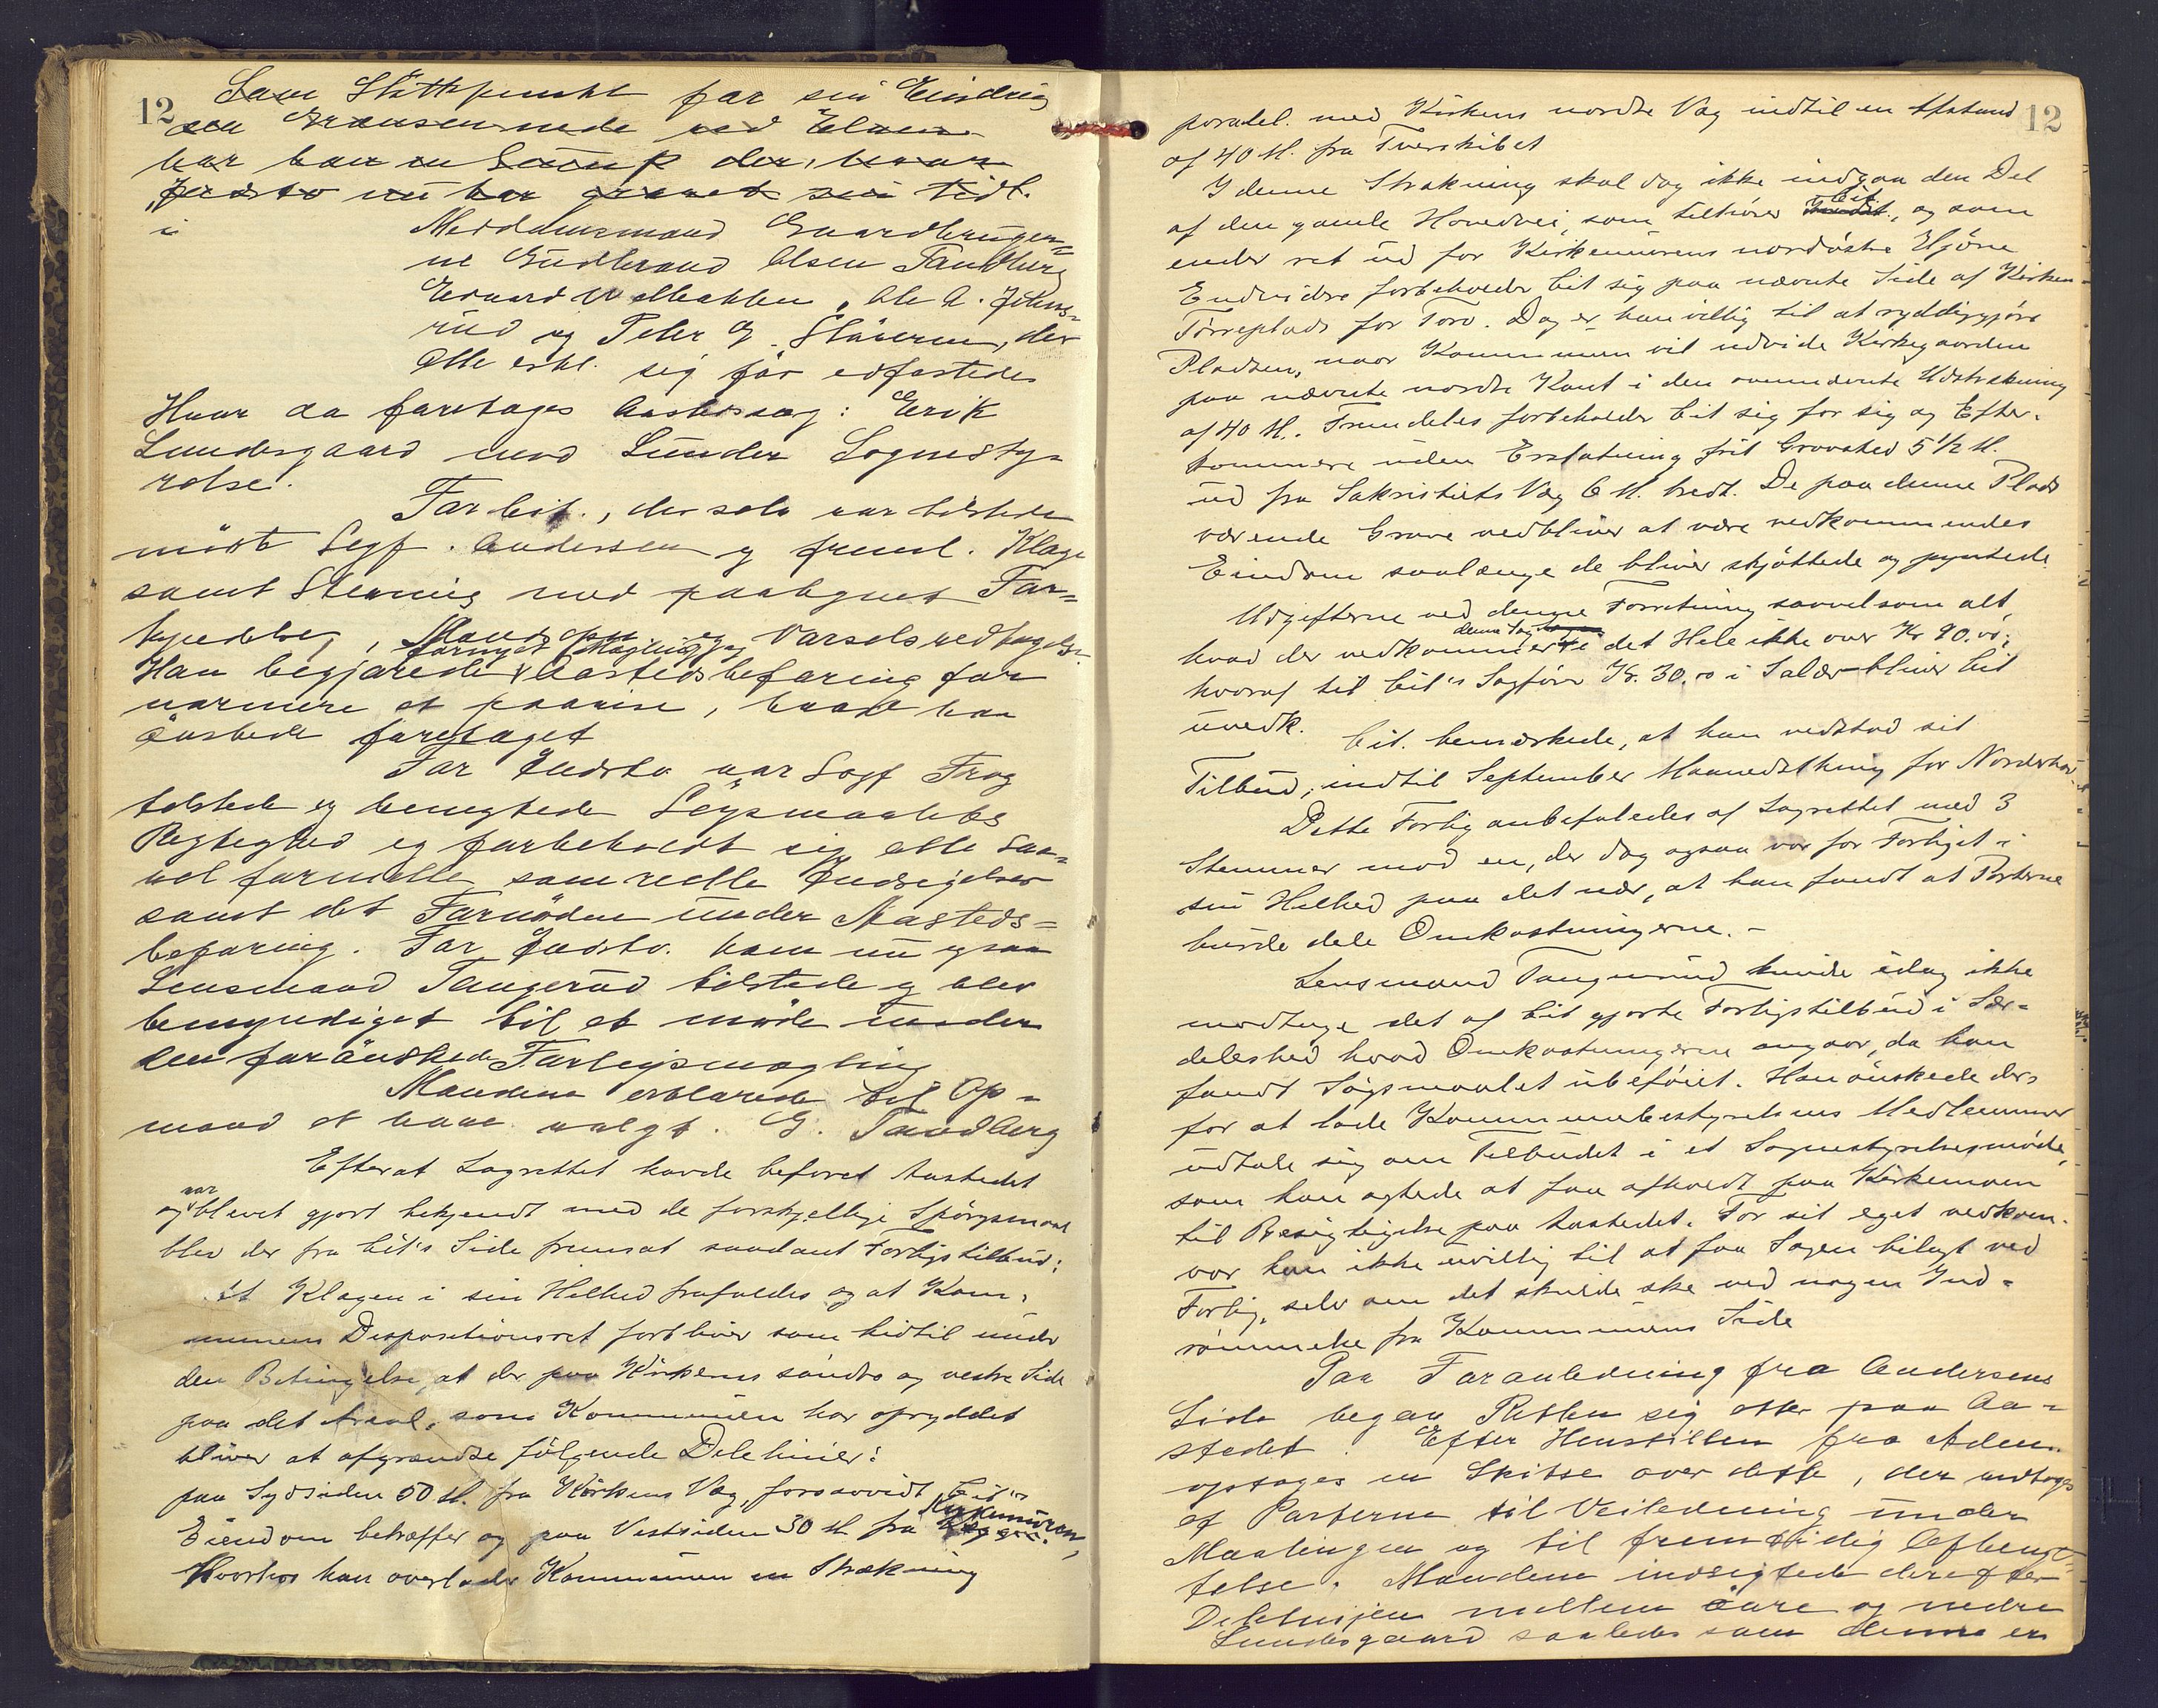 12
Som Støttepunkt for sin Eiendring
om Grænsen nede ved Elven
har han en Stump der, hvor
Indstv nu har grænet sin tidl.
i
Meddomsmænd Gaardbruger-
ne Gudbrand Olsen Tandberg
Edvard Velbakken, Ole A. Johns-
rud og Peter G. Støveren, der
alle erkl. sig før edfæstede
Hvor da foretages Aastedssag: Erik
Lundesgaard mod Lunder Sognesty-
relse.
For Cit., der selv var tilstede
mødte Sagf. Andersen og freml. Klage
samt Stevning med paategnet For-
kyndelse, Mandsopn. og Varselsvedtagelse.
Han begjærede fornyet Mægling og Aastedsbefaring for
nærmere at paavise, hvad han
ønskede foretaget
For Indstv var Sagf Frog
tilstede og benegtede Søgsmaalets
Rigtighed og forbeholdt sig alle saa-
vel formelle som reelle Indsigelser
samt det Fornødne under Aasteds-
befaring. For Indstv. kom nu ogsaa
Lensmand Tangerud tilstede og blev
bemyndiget til at møde under
den forønskede Forligsmægling
Mændene erklærede til Op-
mand at have valgt G. Tandberg
Efterat Lagrettet havde befaret Aastedet
og var blevet gjort bekjendt med de forskjellige Spørgsmaal
blev der fra Cit's Side fremsat saadant Forligstilbud:
At Klagen i sin Helhed frafaldes og at Kom-
munens Dispositionsret forbliver som hidtil under
den Betingelse, at der paa Kirkens søndre og vestre Side
paa det Areal, som Kommunen har opryddet
bliver at afgrændse følgende Delelinier:
paa Sydsiden 50 M. fra Kirkens Væg, forsaavidt Cit's
Eiendom betræffer og paa Vestsiden 30 M fra Kirkemuren,
Hvorhos han overlader Kommunen en Strækning
12
paralel. med Kirkens nordre Væg indtil en Afstand
af 40 M. fra Tverskibet
I denne Strækning skal dog ikke indgaa den Del
af den gamle Hovedvei, som tilhører Cit, og som
ender ret ud for Kirkemurens nordøstre Hjørne
Endvidere forbeholder Cit sig paa nævnte Side af Kirken
Tørreplads for Torv. Dog er han villig til at ryddiggjøre
Pladsen, naar Kommunen vil udvide Kirkegaarden
paa nævnte nordre Kant i den ovennævnte Udstrækning
af 40 M. Fremdeles forbeholder Cit sig for sig og Efter-
kommere uden Erstatning frit Gravsted 5 1/2 M.
ud fra Sakristiets Væg 6 M. bredt. De paa denne Plads
værende Grave vedbliver at være vedkommendes
Eiendom saalænge de bliver skjøttede og pyntede
Udgifterne ved denne Forretning saavelsom alt
hvad der vedkommer denne Sag i det Hele ikke over Kr 90.00,
hvoraf til Cit's Sagfører Kr. 30.00 i Salær bliver Cit
uvedk.
Cit. bemærkede, at han vedstod sit
Tilbud, indtil September Maanedsthing for Norderhov.
Dette Forlig anbefaledes af Lagrettet med 3
Stemmer mod en, der dog ogsaa var for Forliget i
sin Helhed paa det nær, at han fandt at Parterne
burde dele Omkostningerne. -
Lensmand Tangerud kunde idag ikke
modtage det af Cit gjorte Forligstilbud i Sær-
deleshed hvad Omkostningerne angaar, da han
fandt Søgsmaalet ubeføiet. Han ønskede der-
for at lade Kommunebestyrelsens Medlemmer
udtale sig om Tilbudet i et Sognestyrelsesmøde,
som han agtede at faa afholdt paa Kirkemoen
til Besigtigelse paa Aastedet. For sit eget vedkom.
var han ikke uvillig til at faa Sagen bilagt ved
Forlig, selv om det skulde ske ved nogen Ind-
rømmelse fra Kommunens Side
Paa Foranledning fra Andersens
Side begav Retten sig atter paa Aa-
stedet. Efter Henstillen fra Adm.
optages en Skitse over dette, der modtoges
af Parterne til Veiledning under
Maalingen og til fremtidig Afbenyt-
telse. Mændene indsigtede derefter
Delelinjen mellem øvre og nedre
Lundesgaard saaledes som denne er